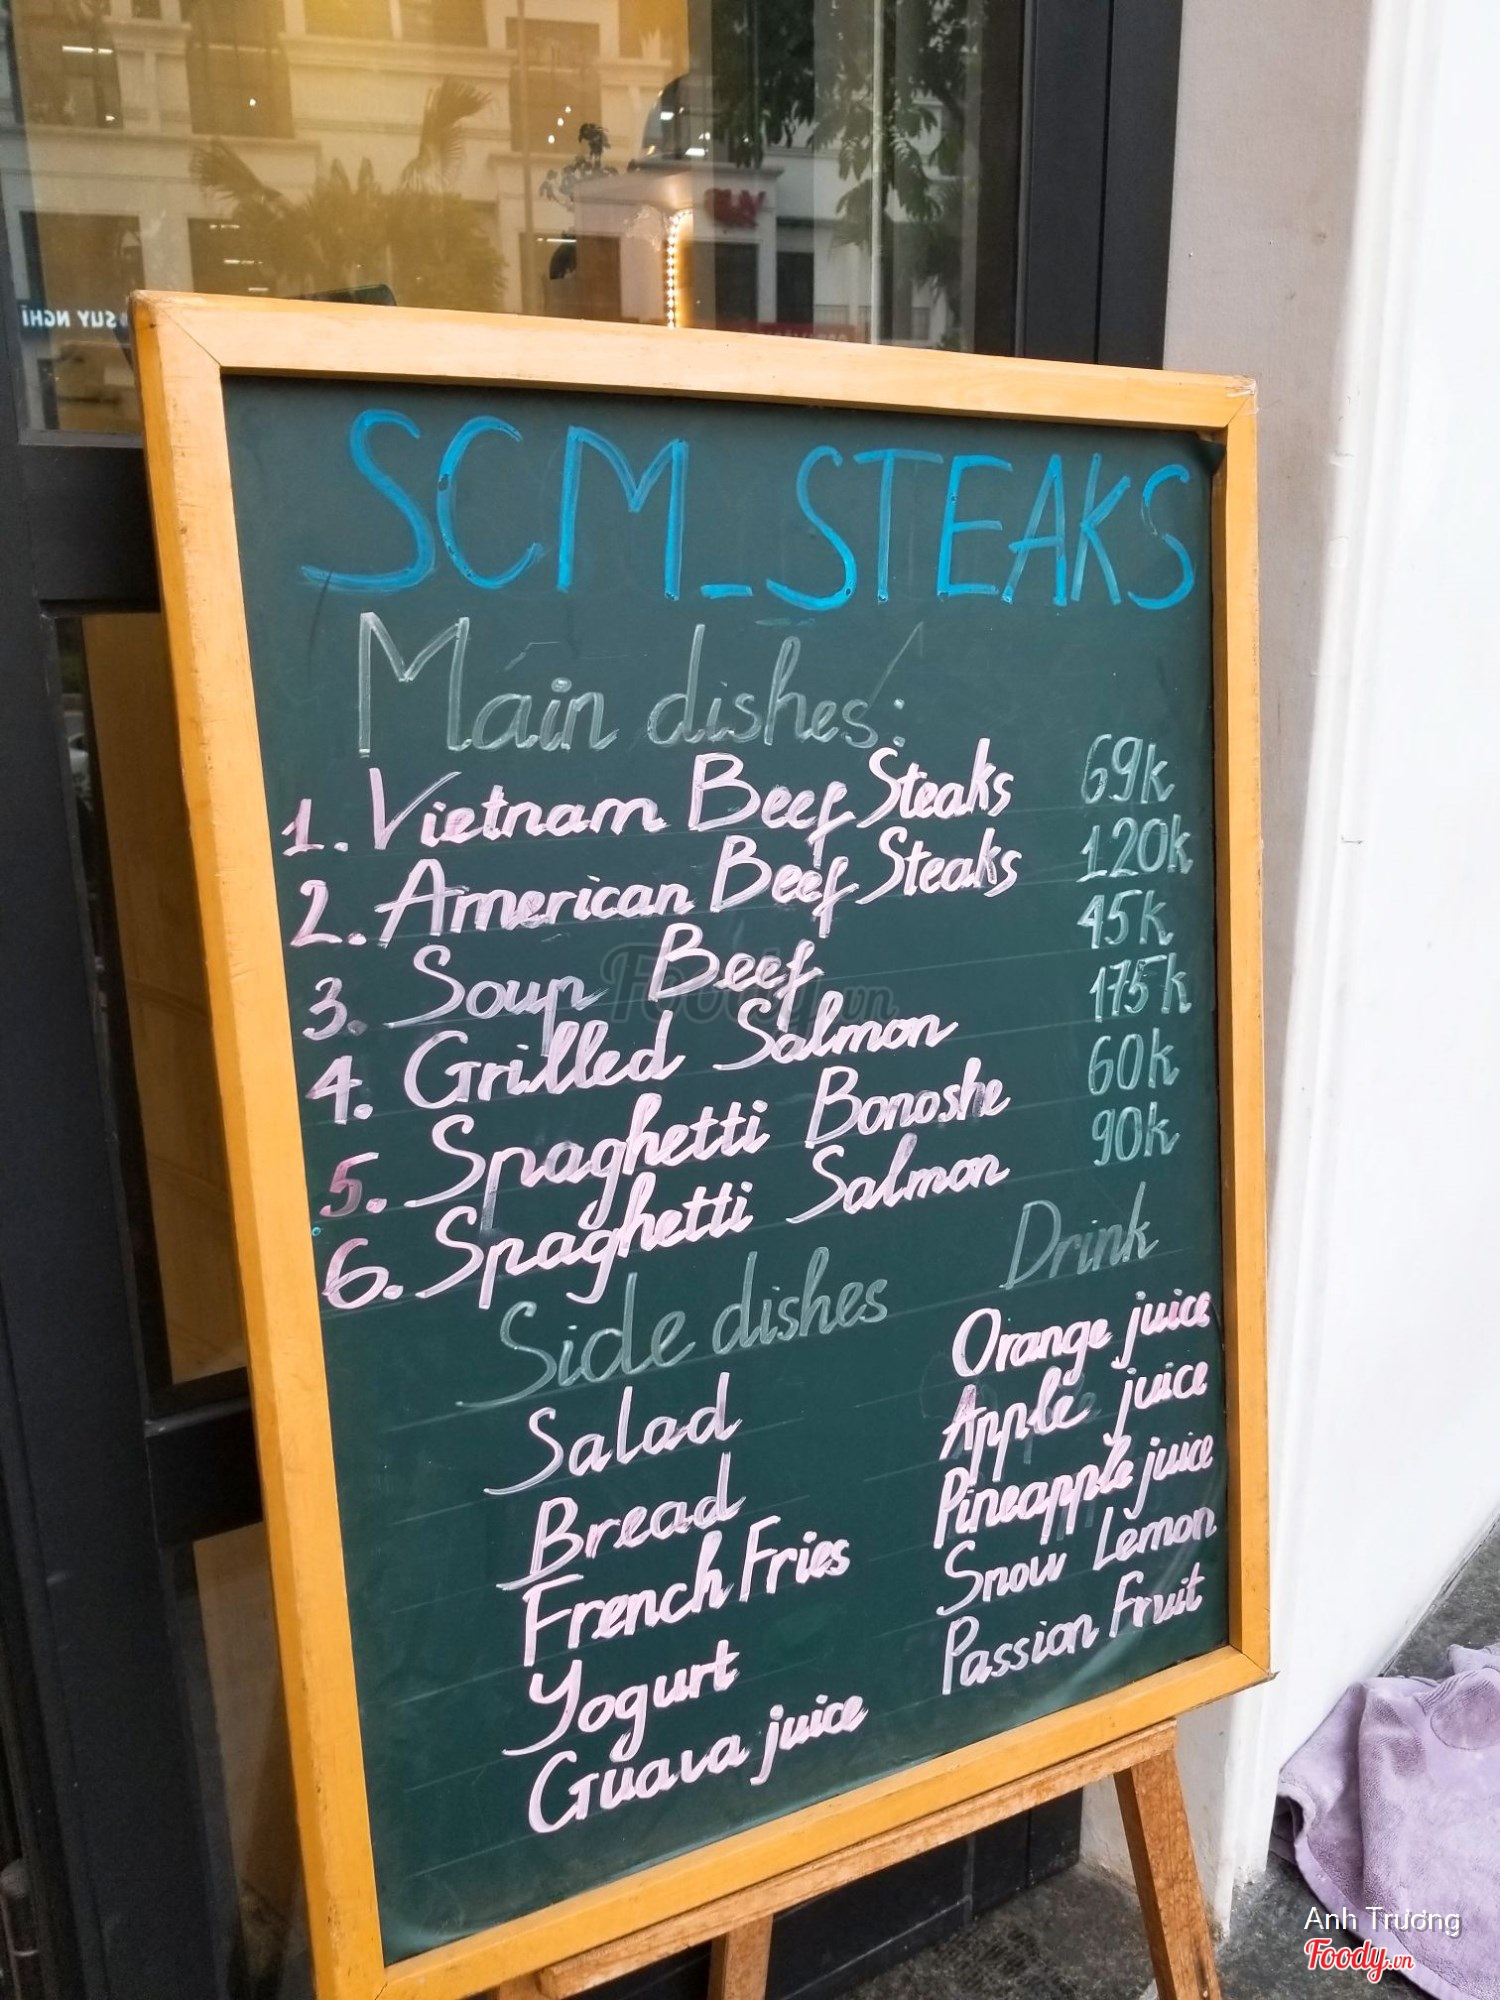 SUY NGHĨ
SCM_STEAKS
Main dishes:
1. Vietnam Beef Steaks 69k
2. American Beef Steaks 120k
3. Soup Beef 45k
4. Grilled Salmon 175k
5. Spaghetti Bonoshe 60k
6. Spaghetti Salmon 90k
Side dishes
Salad
Bread
French Fries
Yogurt
Guava juice
Drink
Orange juice
Apple juice
Pineapple juice
Snow Lemon
Passion Fruit
Foody.vn
Anh Trương
Foody.vn